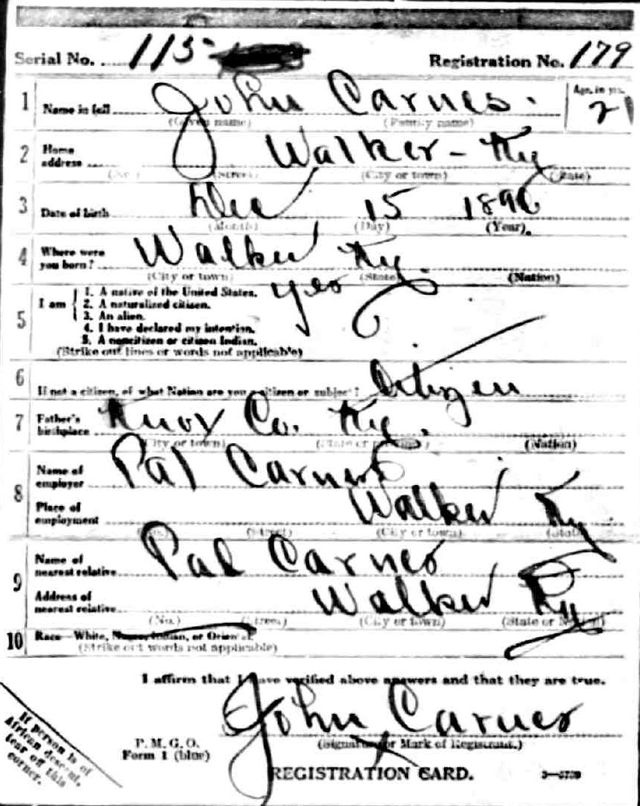 Serial No. 115 Registration No. 179
1 Name in full John Carnes. Age, in yrs. 21
(Given name) (Family name)
2 Home address Walker - Ky
(No.) (Street) (City or town) (State)
3 Date of birth Dec 15 1896
(Month) (Day) (Year)
4 Where were you born? Walker Ky.
(City or town) (State) (Nation)
5 I am
1. A native of the United States. yes
2. A naturalized citizen.
3. An alien.
4. I have declared my intention.
5. A noncitizen or citizen Indian.
(Strike out lines or words not applicable)
6 If not a citizen, of what Nation are you a citizen or subject? Citizen
7 Father's birthplace Knox Co. Ky.
(City or town) (State or province) (Nation)
8 Name of employer Pal Carnes
Place of employment Walker Ky
(No.) (Street) (City or town) (State)
9 Name of nearest relative Pal Carnes
Address of nearest relative Walker Ky
(No.) (Street) (City or town) (State or Nation)
10 Race—White, Negro, Indian, or Oriental.
(Strike out words not applicable)
I affirm that I have verified above answers and that they are true.
John Carnes
X
(Signature or Mark of Registrant.)
P. M. G. O.
Form 1 (blue)
REGISTRATION CARD.
If person is of
African descent,
tear off this
corner.